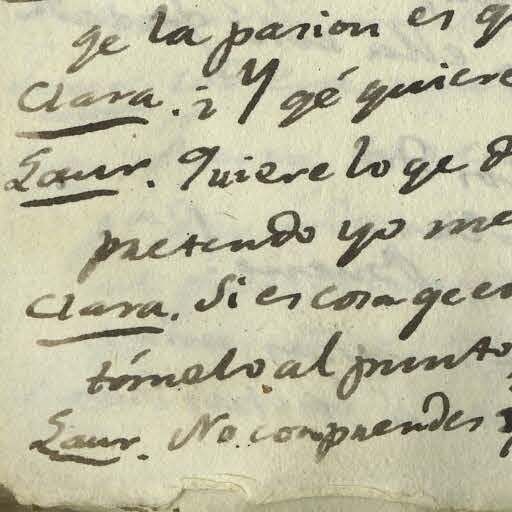 ge la pasion es q
Clara. ¿Y gé quiere
Laur. Quiere lo ge d
pretendo yo me
Clara. Si es cosa ge en
tómelo al punto,
Laur. No comprendes